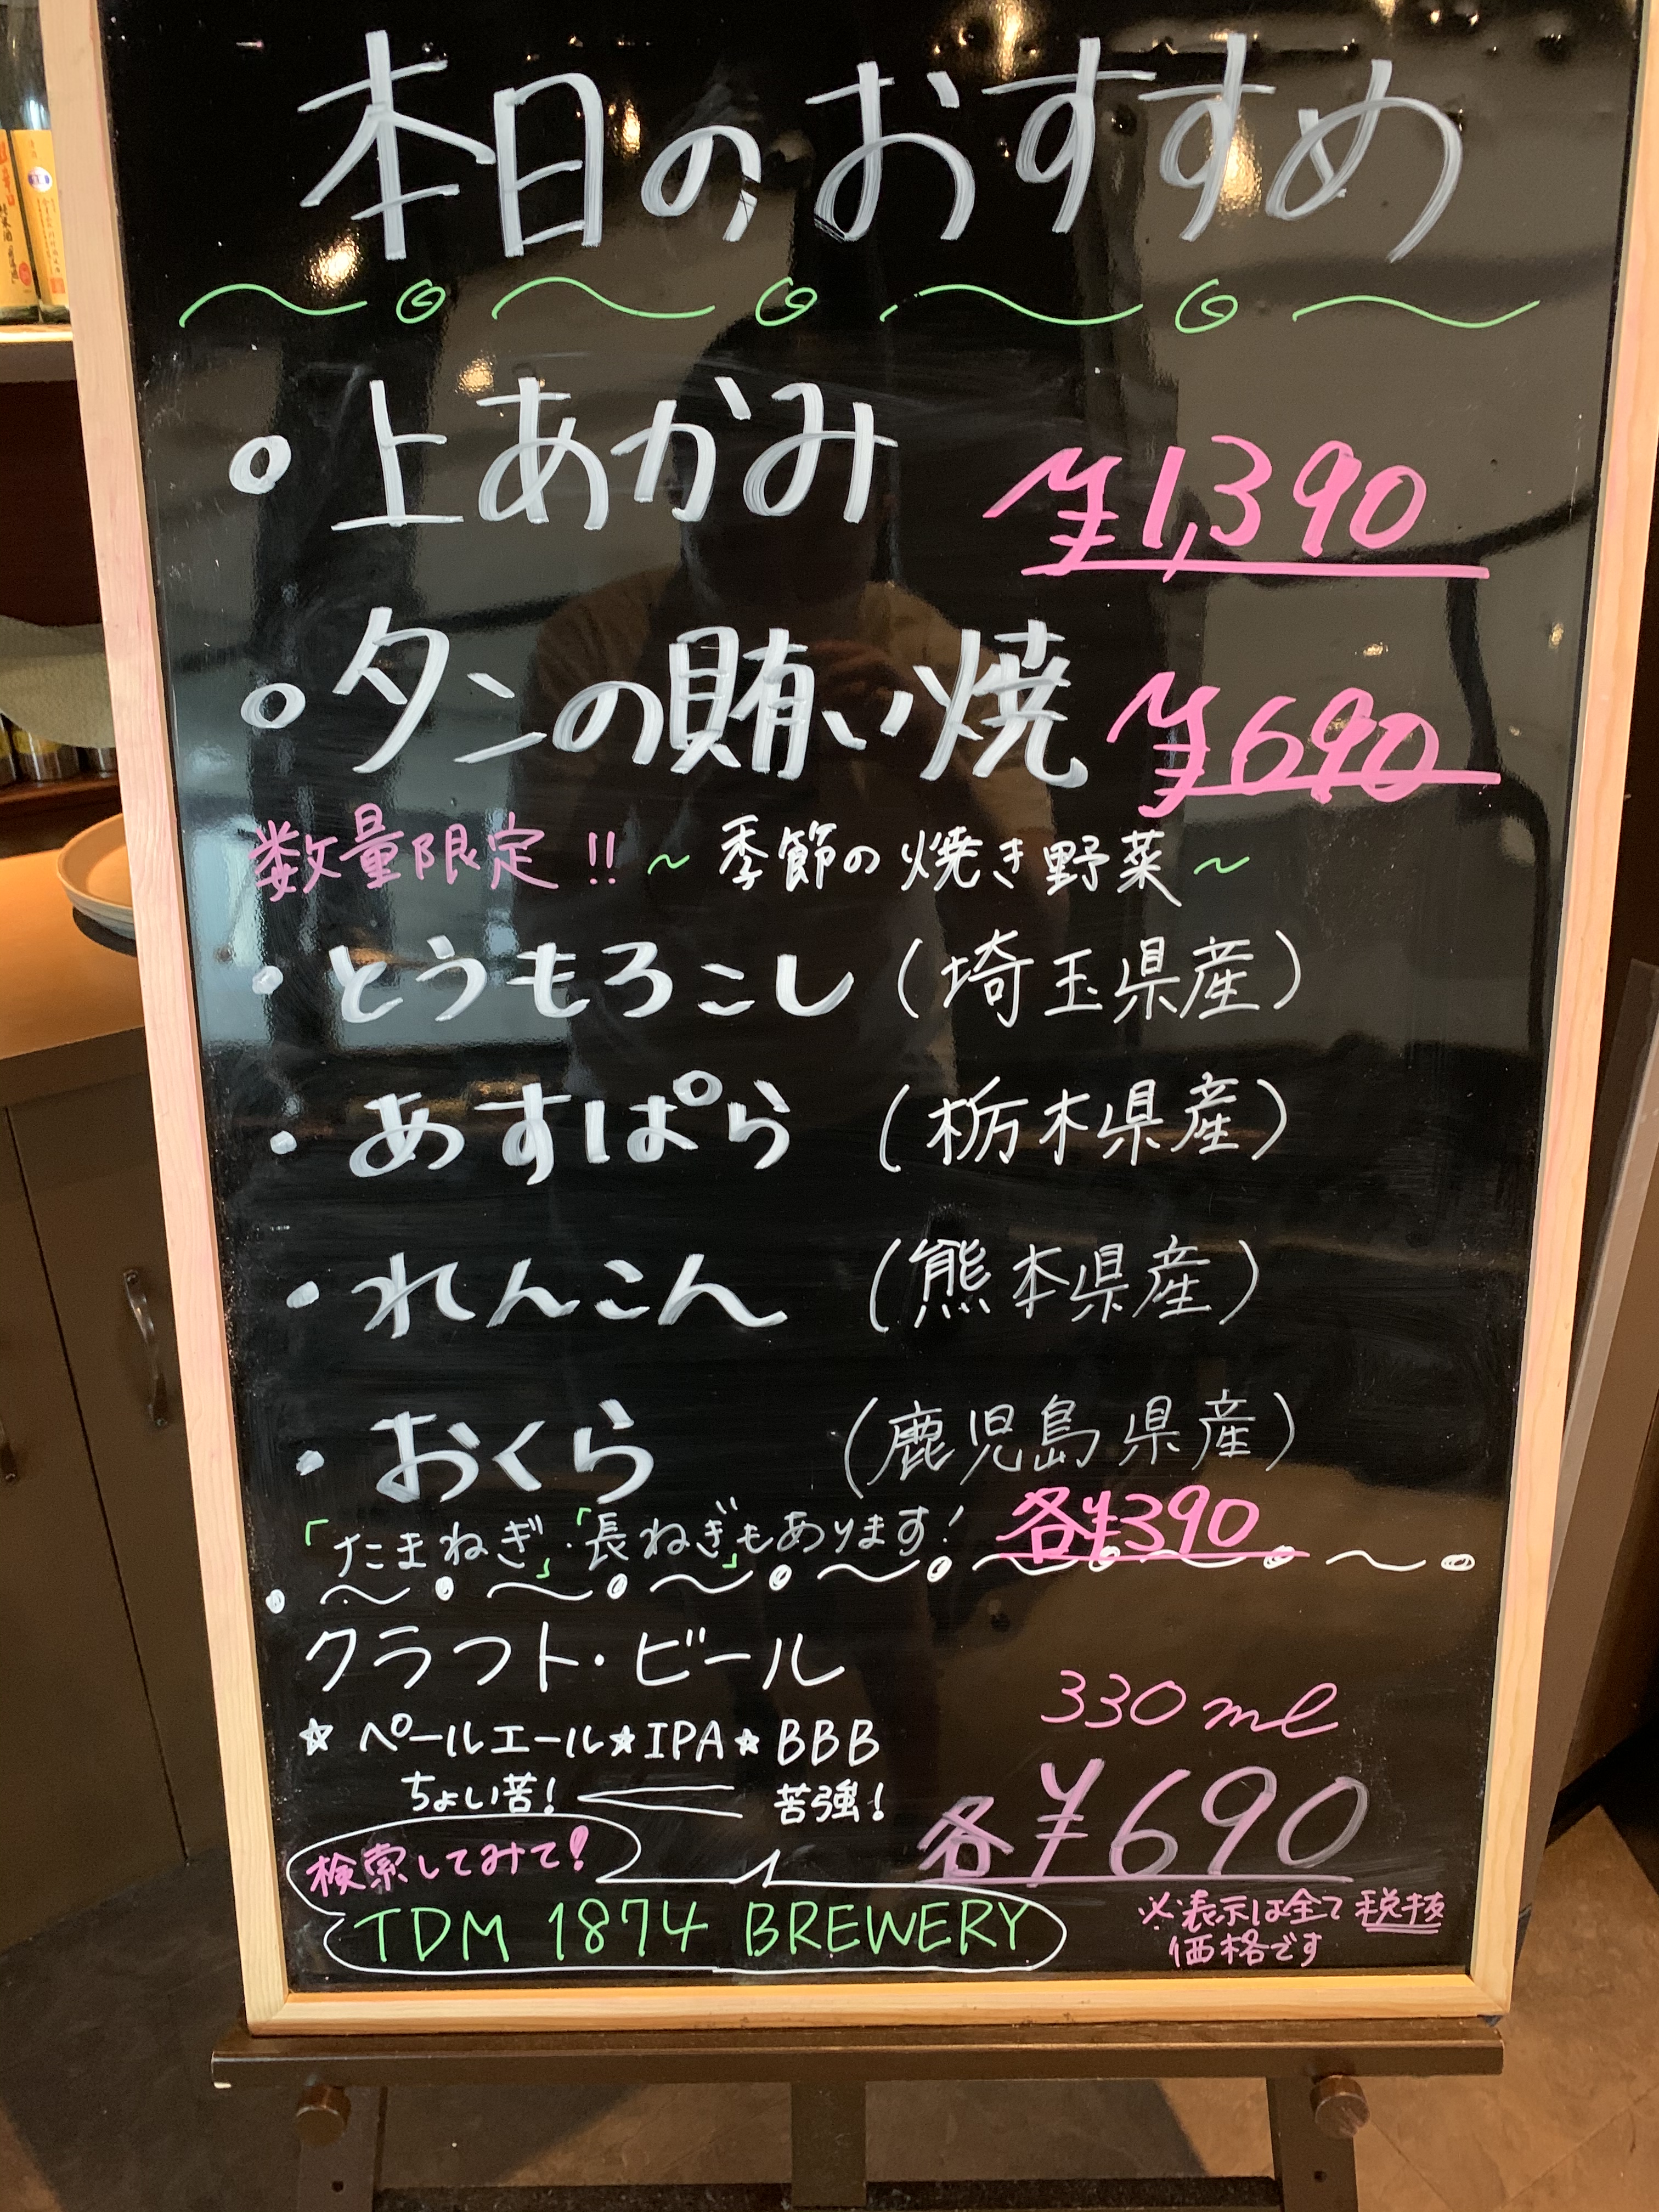 本日のおすすめ
上あかみ ¥1,390
タンの賄い焼 ¥690
数量限定!! ～季節の焼き野菜～
・とうもろこし(埼玉県産)
・あすぱら(栃木県産)
・れんこん(熊本県産)
・おくら(鹿児島県産)
「たまねぎ」・「長ねぎ」もあります! 各¥390
クラフト・ビール
330ml
☆ペールエール★IPA★BBB
ちょい苦! 苦強!
各¥690
検索してみて!
TDM 1874 BREWERY
※表示は全て税抜
価格です